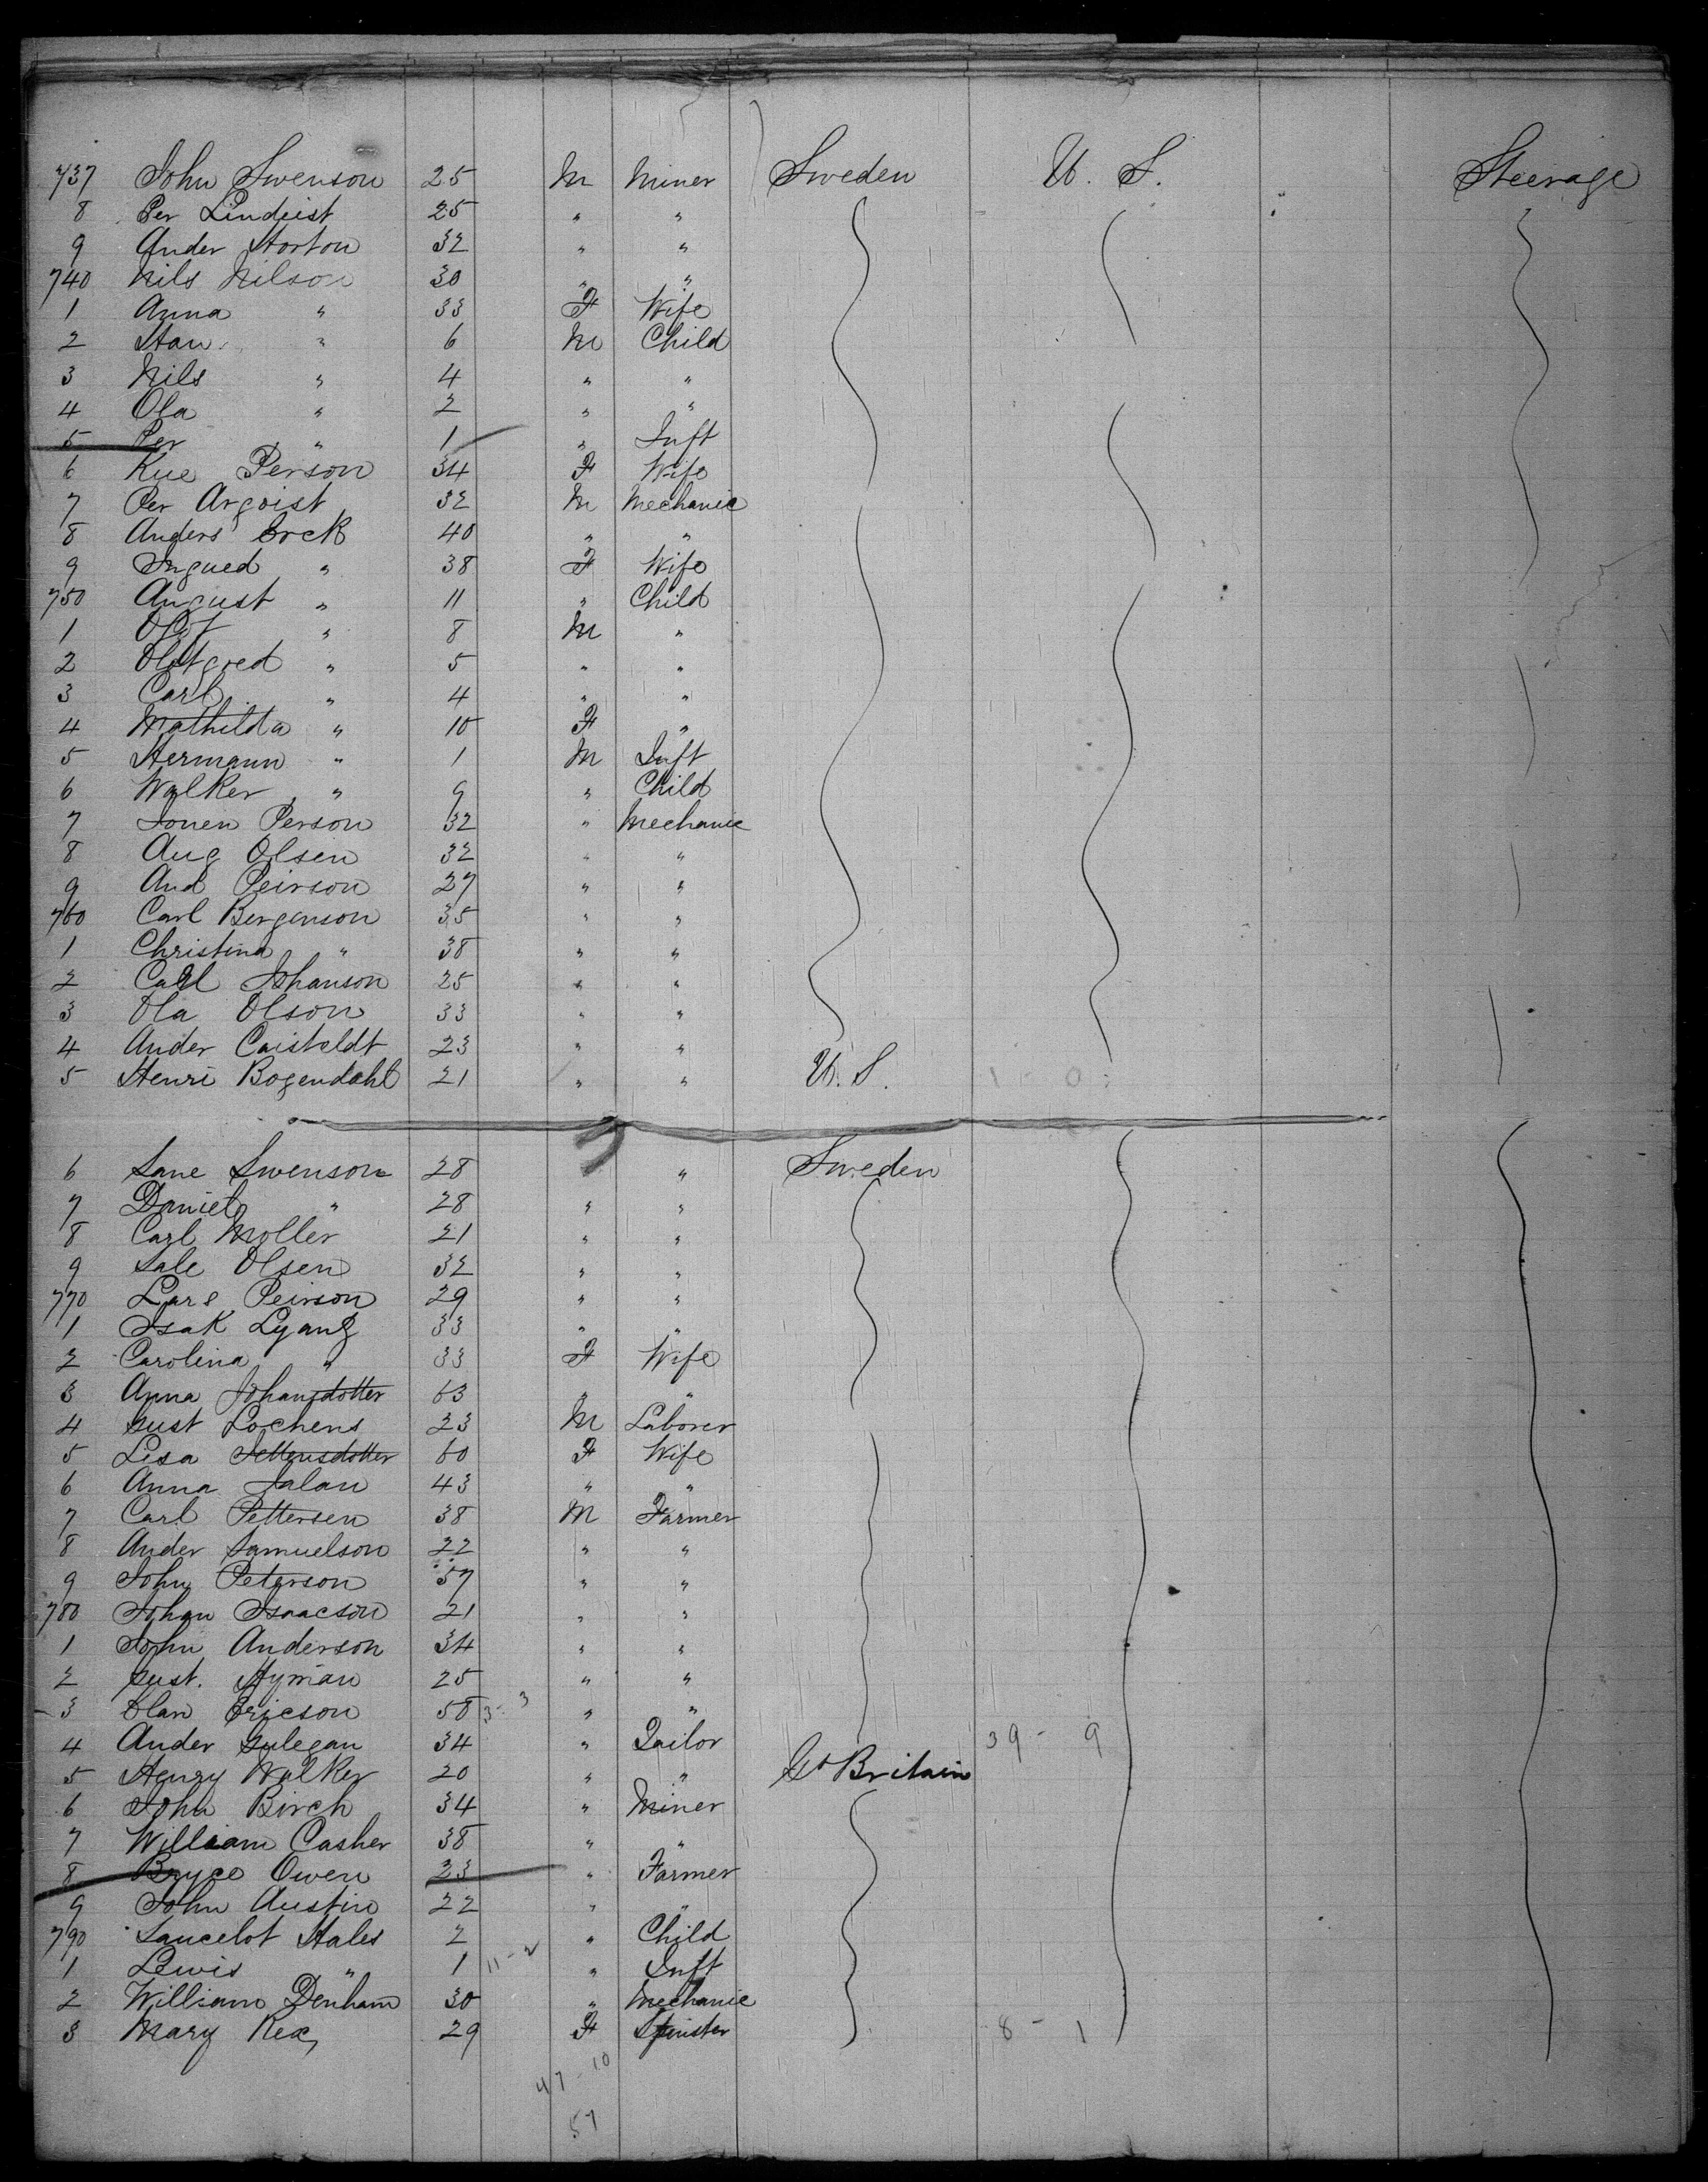 737 John Swenson 25 M Miner Sweden U. S. Steerage
8 Per Lindeist 25 " "
9 Ander Horton 32 " "
740 Nils Nilson 30 " "
1 Anna " 33 F Wife
2 Han " 6 M Child
3 Nils " 4 " "
4 Ola " 2 " "
5 Per " 1 " Inft
6 Kue Person 34 F Wife
7 Per Arqoist 32 M Mechanic
8 Anders Erck 40 " "
9 Ingued " 38 F Wife
750 August " 11 " Child
1 Olof " 8 M "
2 " 5 " "
3 Carl " 4 " "
4 Mathilda " 10 F "
5 Hermann " 1 M Inft
6 Walker " 9 " Child
7 Jonen Person 32 " Mechanic
8 Aug Olsen 32 " "
9 And Peirson 27 " "
760 Carl Bergenson 35 " "
1 Christina " 38 " "
2 Carl Johanson 25 " "
3 Ola Olson 33 " "
4 Ander Caisteldt 23 " "
5 Henri Bogendahl 21 " " U. S. 1 - 0
6 Lane Swenson 28 " Sweden
7 Daniel " 28 " "
8 Carl Moller 21 " "
9 Sale Olsen 32 " "
770 Lars Peirson 29 " "
1 Isak 33 " "
2 Carolina " 33 F Wife
3 Anna Johansdotter 63 " "
4 Gust Lochens 23 M Laborer
5 Lisa 60 F Wife
6 Anna Jalan 43 " "
7 Carl Pettersen 38 M Farmer
8 Ander Samuelson 22 " "
9 John Peterson 57 " "
780 Johan Isaacson 21 " "
1 John Anderson 34 " "
2 Gust. Hyman 25 " "
3 Olan Ericson 58 3 - 3 " "
4 Ander Gulegan 34 " Tailor 39 - 9
5 Henry Walker 20 " " Gt Britain
6 John Birch 34 " Miner
7 William Casher 38 " "
8 Bryce Owen 23 " Farmer
9 John Austin 22 " "
790 Lancelot Hales 2 " Child
1 Lewis " 1 11 - 2 " Inft
2 William Denham 30 " Mechanic
3 Mary Rex 29 F Spinster 8 - 1
47 - 10
57